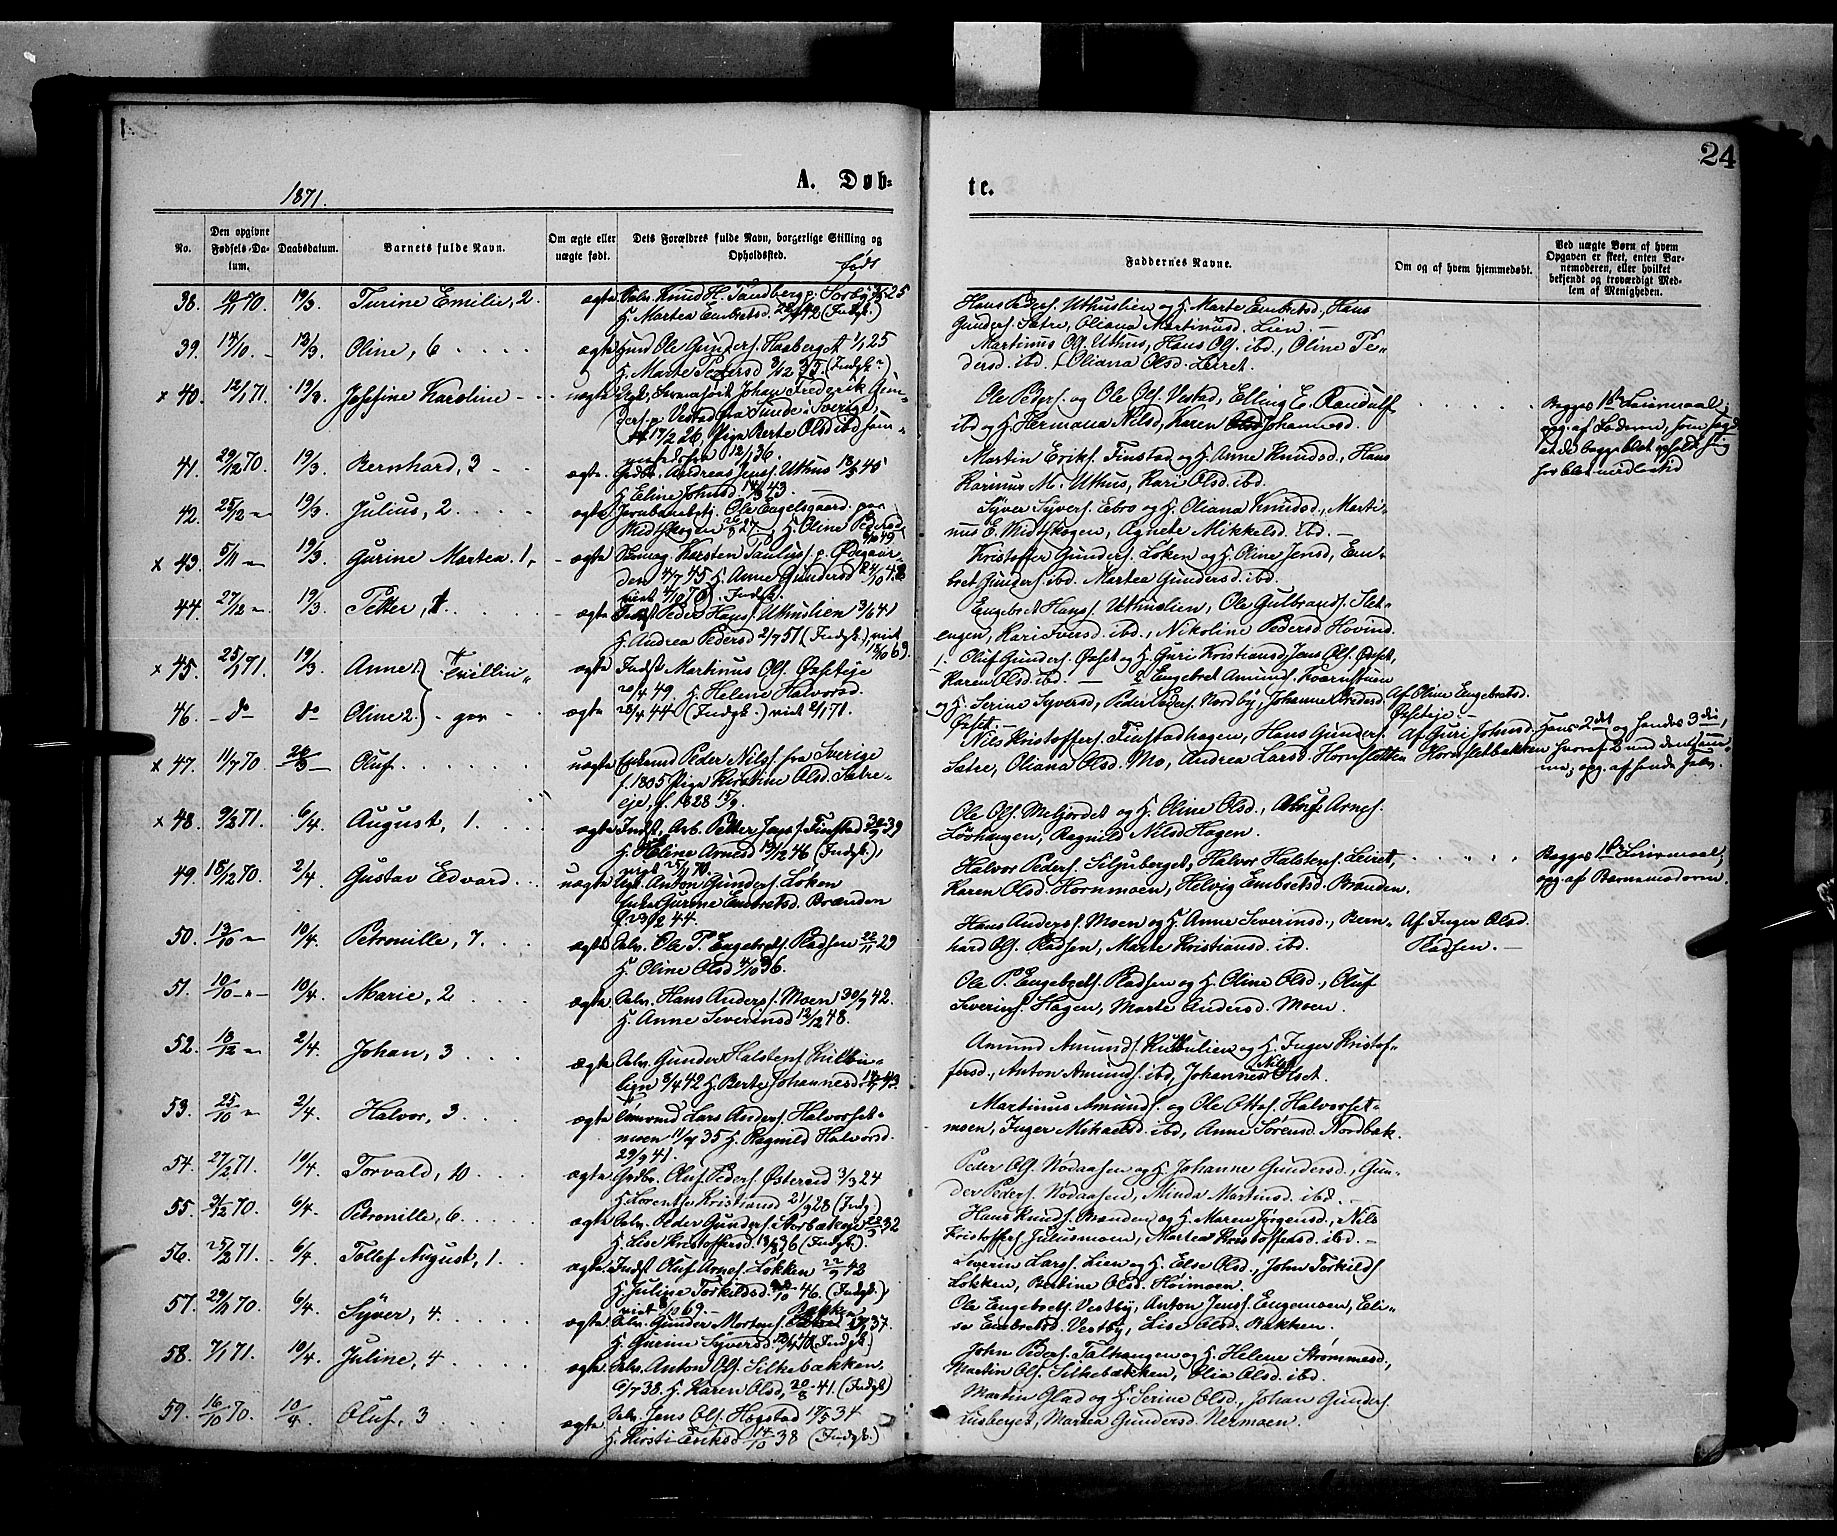 24
1871.
A. Døb-
te.
No.
Den opgivne Fødsels-Da-tum.
Daabsdatum.
Barnets fulde Navn.
Om ægte eller uægte født.
Dets Forældres fulde Navn, borgerlige Stilling og Opholdssted.
født
Faddernes Navne.
Om og af hvem hjemmedøbt.
Ved uægte Børn af hvem Opgaven er skeet, enten Barnemoderen, eller hvilket bekjendt og troværdigt Medlem af Menigheden.
38. 70. 19/3. Turine Emilie, 2. ægte Selv. Knud H. Sandberg p. Sorby 25
H. Martea Embretsd. 42 (Indgk.)
Hans Peders. Uthuslien og H. Marte Embretsd., Hans
Gunders. Sætre, Oliana Martinusd. Lien. —
39. 14/10. – 19/3. Oline, 6 ægte Ole Gunders. Haaberget 25
H. Marte Pedersd 3/12 35. (Indgk.)
Martinus Ols. Uthus, Hans Ols. ibd., Oline Pe-
dersd. ibd. Oliana Olsd. Leiret.
x 40. 12/1 71. 19/3. Josefine Karoline – uægte Johan Frederik Gun-
ders. p. Vestad fra Sunde i Sverige,
17/2 26, Pige Berte Olsd ibd
12/1 36.
Ole Peders. og Ole Ols. Vestad, Elling E. Randulf
ibd og H. Hermana Nilsd, Karen Johannesd.
Begges 1ste Leiermaal,
opg. af Faderen, som sagde
at de begge blot opholdt sig
for blot midlertid
41. 29/12 70. 19/3. Bernhard, 3 – ægte Andreas Jenss. Uthus 18/3 45
H. Eline Johnsd. 43.
Martin Eriks. Finstad og H. Anne Knudsd., Hans
Rasmus M. Uthus, Kari Olsd. ibd.
42. 25/12 – 19/3. Julius, 2. ægte Ole Engelsgaard paa
Midtskogen 27. H. Oline Pedersd
49
Syver Syvers. Ebro og H. Oliana Knudsd., Marti-
nus E. Midtskogen, Agnete Mikkelsd. ibd. —
x 43. 5/11 – 19/3. Gurine Martea. 1, – ægte Karsten Pauluss. p. Ødegaar-
den 4/7 45 H. Anne Gundersd 24/10 48
viet 4/10 70. Indgk.
Kristoffer Gunders. Løken og H. Oline Jensd, Em-
bret Gunders. ibd. Martea Gundersd. ibd.
44. 27/12 – 19/3. Petter, 1. – ægte Peder Hans. Uthuslien 3/6 41
H. Andrea Pedersd 2/7 51 (Indgk.), viet
69.
Engebret Hans. Uthuslien, Ole Gulbrands. Slet-
engen, Kari Iversd. ibd., Nikoline Pedersd. Hovind.
x 45. 25/1 71. 19/3. Anne 1 } Tvillin- ægte Indst Martinus Ols. Øxseteje
20/4 49. H. Helene Halvorsd.
1. Oluf Gunders. Øxset og H. Guri Kristiansd, Jens Ols. Øxset,
Karen Olsd. ibd. — 2. Engebret Amunds. Kvernstuen
46. – do – do Oline 2. } – ger – ægte 44 (Indgk.) viet 2/1 71.
og H. Serine Syversd., Peder Peders. Nordby, Johanne Bredesd.
Øxset. —
Af Oline Engebretsd.
Øxseteje. —
x 47. 11/7 70 26/3 – Oluf. uægte Enkemd Peder Nils. fra Sverige
f. 1805 Pige Kirstine Olsd Sætre-
eje, f. 1828 15/9.
Nils Kristoffers. Finstadhagen, Hans Gunders.
Sætre, Oliana Olsd. Mo, Andrea Larsd. Hornsletten
Af Guri Johnsd
Hornsletbakken
Hans 2det og hendes 3die,
hvoraf 2 med den sam-
me, opg. af hende selv.
x 48. 9/2 71. 6/4. August, 1. ægte Indst, Arb. Petter Jons. Finstad 39
H. Heline Arnesd 19/12 46 (Indgk.),
viet 25/1 70.
Ole Ols. Melgordet og H. Oline Olsd., Arnes.
Løvhaugen, Ragnild Nilsd Hagen.
49. 18/12 70. 2/4. Gustav Edvard. uægte Anton Gunders. Løken
Gurine Embretsd. Brænden
f. 23/2 44.
Halvor Peders. Siljuberget, Halvor Halstens. Leiret,
Karen Olsd. Hornmoen, Helvig Embretsd. Brænden.
Begges 1ste Leiermaal,
opg. af Barnemoderen.
50. 13/10 – 10/4. Petronille, 7. ægte Selv. Ole P. Engebrets. Pladsen 29
H. Oline Olsd 4/10 36.
Hans Anders. Moen og H. Anne Severinsd., Bern-
hard Ols. Pladsen, Marte Kristiansd. ibd.
Af Inger Olsd.
Pladsen. —
51. 10/10 – 10/4. Marie, 2 ægte Selv. Hans Anders. Moen 30/9 42.
H. Anne Severinsd 12/12 48.
Ole P. Engebrets. Pladsen og H. Oline Olsd., Oluf
Severins. Hagen, Marte Andersd. Moen.
52. 18/12 – 2/4. Johan, 3 ægte Selv. Gunder Halstens. Kulbu-
lien 9/4 42 H. Berte Johannesd 43
Amund Amunds. Kulbulien og H. Inger Kristof-
fersd., Anton Amunds. ibd, Johannes Nils. Olset.
53. 25/10 – 2/4. Halvor, 3. ægte Lars Anders. Halvorset-
moen 11/4 35 H. Ragnild Halvorsd.
29/9 41.
Martinus Amunds. og Ole Ottos. Halvorset-
moen, Inger Mikaelsd. ibd, Anne Sørensd. Nordbak.
54. 27/2 71. 10/4. Torvald, 10. ægte Gdbr. Oluf Peders. Østerud 3/3 24
H. Lorentse Kristiansd 21/9 28 (Indg.)
Peder Ols. Nødaasen og H. Johanne Gundersd., Gun-
der Peders. Nødaasen, Minda Martinsd. ibd. —
55. 9/12 70. 6/4. Petronille, 6. ægte Selv. Peder Gunders. Storbækeje 32
H. Lise Kristoffersd. 36 (Indgk.).
Hans Knuds. Brænden og H. Maren Jørgensd., Nils
Kristoffers. Juliusmoen, Martea Kristoffersd. ibd. —
56. 25/2 71. 6/4. Tollef August, 1. ægte Indst Oluf Arnes. Løkken 22/9 42
H. Juline Torkildsd. 46. (Indgk.)
viet 8/10 69. —
Severin Lars. Lien og H. Else Olsd., John Torkilds.
Løkken, Bertine Olsd. Høimoen.
57. 29/11 70. 6/4. Syver, 4. ægte Selv. Gunder Mortens. Bakken 37.
H. Gurine Syversd. 40 (Indgk.)
Ole Engebrets. Vestby, Anton Jens. Engemoen, Eli-
se Embretsd. Vestby, Lise Olsd. Bakken.
58. 7/1 71. 10/4. Juline, 4. ægte Selv. Anton Ols. Silkebækken
6/7 38. H. Karen Olsd, 20/8 41. (Indgk)
John Peders. Talhaugen og H. Helene Strømmesd,
Martin Ols. Silkebækken, Olia Olsd. ibd.
59. 16/10 70. 10/4. Oluf, 3 ægte Selv. Jens Ols. Hogstad 34
H. Kirsti Eriksd 14/10 38 (Indgk.)
Martin Glad og H. Serine Olsd., Johan Gunders.
Lisberget, Martea Gundersd. Nermoen.